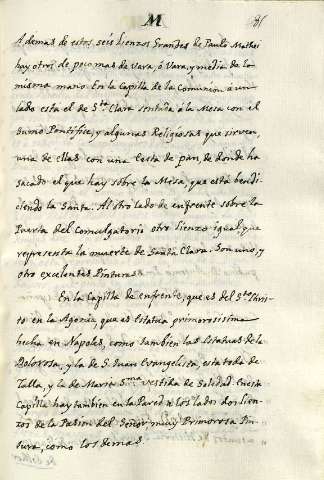 M
Ademas de estos seis Lienzos Grandes de Paulo Mathei
hay otros de poco mas de Vara, ó Vara, y media de la
misma mano. En la Capilla de la Comunion a un
lado esta el de S.ta Clara sentada à la Mesa con el
Sumo Pontifice, y algunas Religiosas que sirven,
una de ellas con una Cesta de pan, de donde ha
sacado el que hay sobre la Mesa, que está bendi-
ciendo la Santa. Al otro lado de enfrente sobre la
Puerta del Comulgatorio otro Lienzo igual que
representa la muerte de Santa Clara. Son uno, y
otro excelentes Pinturas.
En la Capilla de enfrente, que es del S.to Chris-
to en la Agonia, que es Estatua primorosissima
hecha en Napoles, como tambien las Estatuas de la
Dolorosa, y la de S. Juan Evangelista, esta toda de
Talla, y la de Maria S.ma vestida de Soledad. En esta
Capilla hay tambien en la Pared a los lados dos Lien-
zos de la Pasion del Señor muy Primorosa Pin-
tura, como los demas.